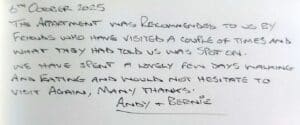 6TH OCTOBER 2025
THE APARTMENT WAS RECOMMENDED TO US BY
FRIENDS WHO HAVE VISITED A COUPLE OF TIMES AND
WHAT THEY HAD TOLD US WAS SPOT ON.
WE HAVE SPENT A LOVELY FEW DAYS WALKING
AND EATING AND WOULD NOT HESITATE TO
VISIT AGAIN, MANY THANKS.
ANDY + BERNIE